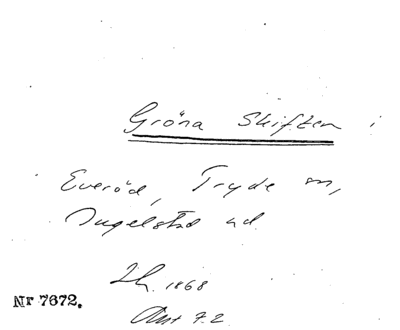 Gröna Skiften i
Everöd, Tryde sn,
Ingelstad hd.
Lh. 1868
Nr 7672.
Ant 7.2